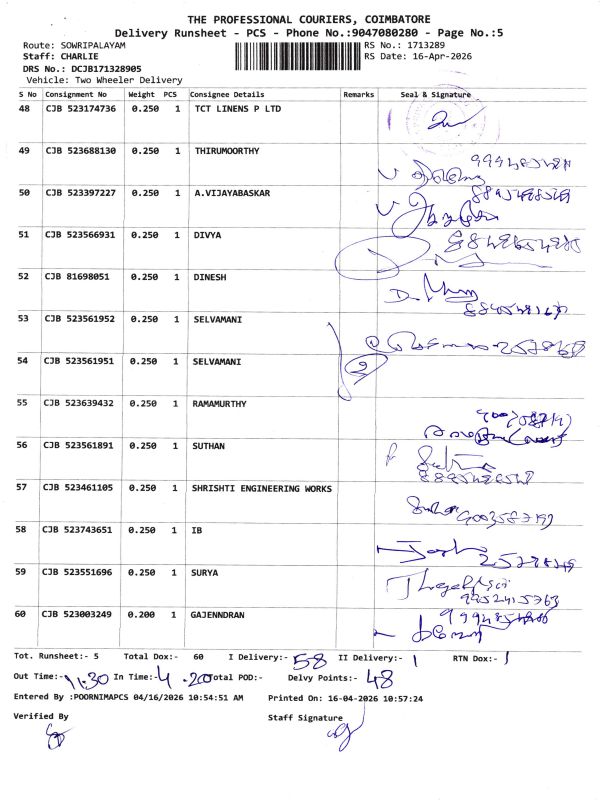 THE PROFESSIONAL COURIERS, COIMBATORE
Delivery Runsheet - PCS - Phone No.:9047080280 - Page No.:5
Route: SOWRIPALAYAM RS No.: 1713289
Staff: CHARLIE RS Date: 16-Apr-2026
DRS No.: DCJB171328905
Vehicle: Two Wheeler Delivery
S No Consignment No Weight PCS Consignee Details Remarks Seal & Signature
48 CJB 523174736 0.250 1 TCT LINENS P LTD
49 CJB 523688130 0.250 1 THIRUMOORTHY
50 CJB 523397227 0.250 1 A.VIJAYABASKAR
51 CJB 523566931 0.250 1 DIVYA
52 CJB 81698051 0.250 1 DINESH
53 CJB 523561952 0.250 1 SELVAMANI
54 CJB 523561951 0.250 1 SELVAMANI
2
55 CJB 523639432 0.250 1 RAMAMURTHY
56 CJB 523561891 0.250 1 SUTHAN
57 CJB 523461105 0.250 1 SHRISHTI ENGINEERING WORKS
58 CJB 523743651 0.250 1 IB
59 CJB 523551696 0.250 1 SURYA
60 CJB 523003249 0.200 1 GAJENNDRAN
Tot. Runsheet:- 5 Total Dox:- 60 I Delivery:- 58 II Delivery:- 1 RTN Dox:- 1
Out Time:- 11.30 In Time:- 4.20 Total POD:- Delvy Points:- 48
Entered By :POORNIMAPCS 04/16/2026 10:54:51 AM Printed On: 16-04-2026 10:57:24
Verified By Staff Signature